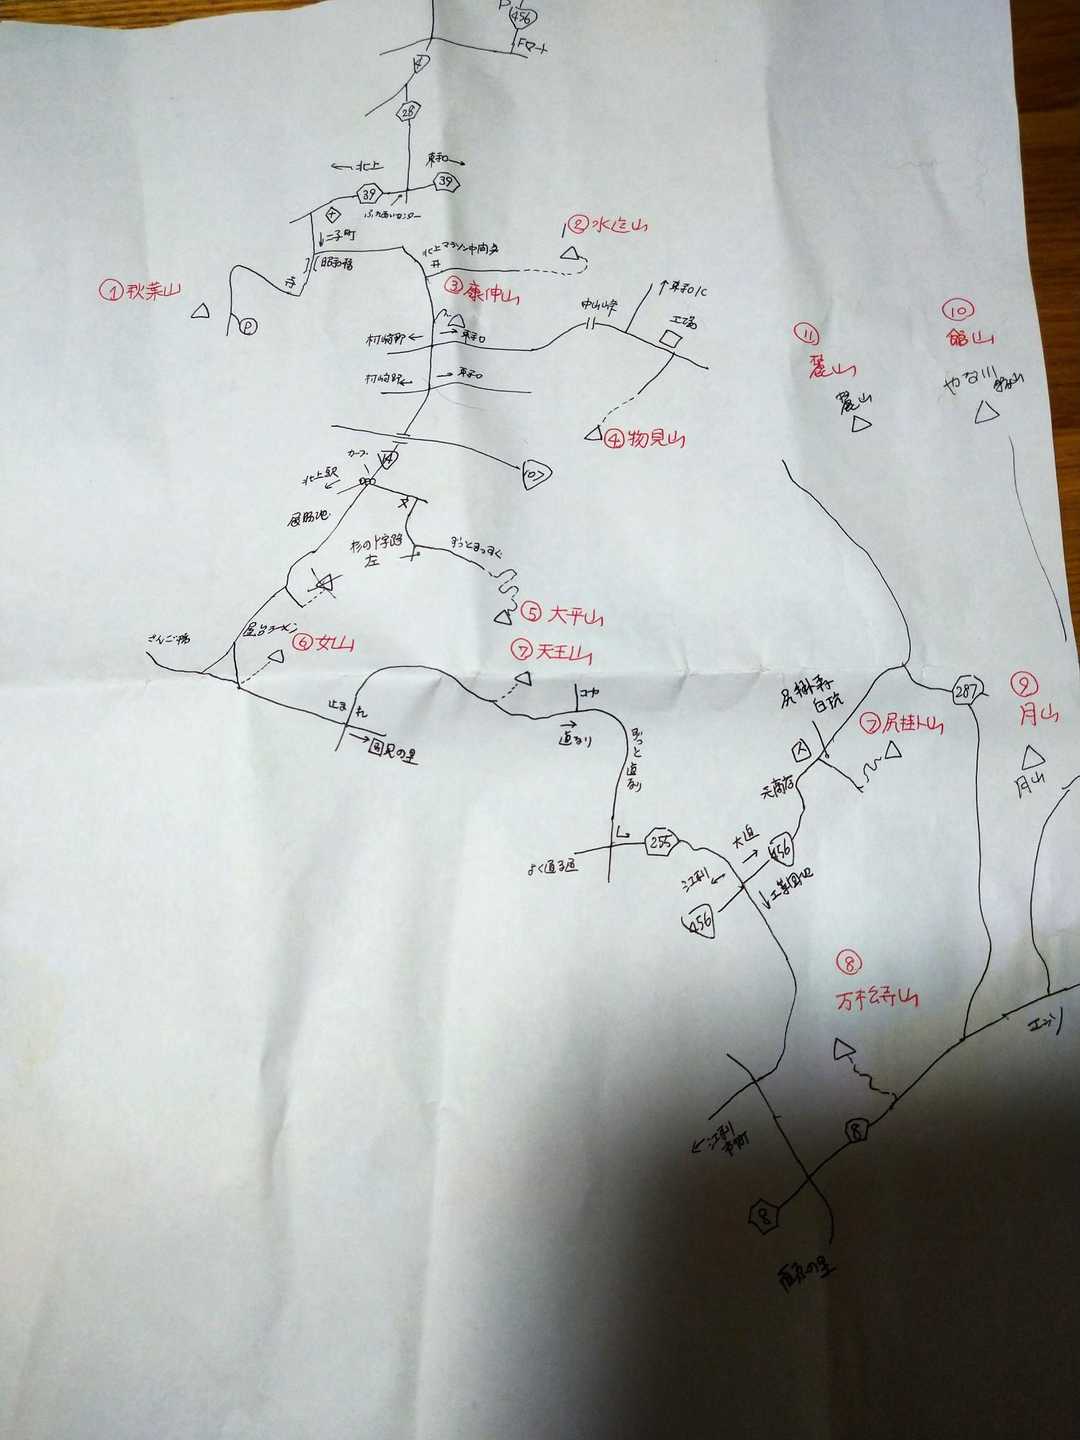 456
4
28
← 北上
東和 →
39
39
ふれあいセンター
↓ 二子町
昭和橋
寺
① 秋葉山
P
北上マラソン中間点
② 水乞山
③ 康仲山
↑ 東和IC
中山峠
工場
村崎野 ←
→ 東和
村崎野 ←
→ 東和
④ 物見山
⑪
麓山
麓山
⑩
館山
やな川
14
107
カーブ
北上駅
←
杉の十字路
左
ずっとまっすぐ
⑤ 大平山
さんご橋
屋台ラーメン
⑥ 女山
⑦ 天王山
止まれ
→ 国見の里
→
道なり
ずっと道なり
よく通る道
255
大迫
→
江刺
←
456
456
↓ 工業団地
⑦ 尻掛山
287
⑨
月山
月山
⑧
万松寺山
← 江刺
市町
8
8